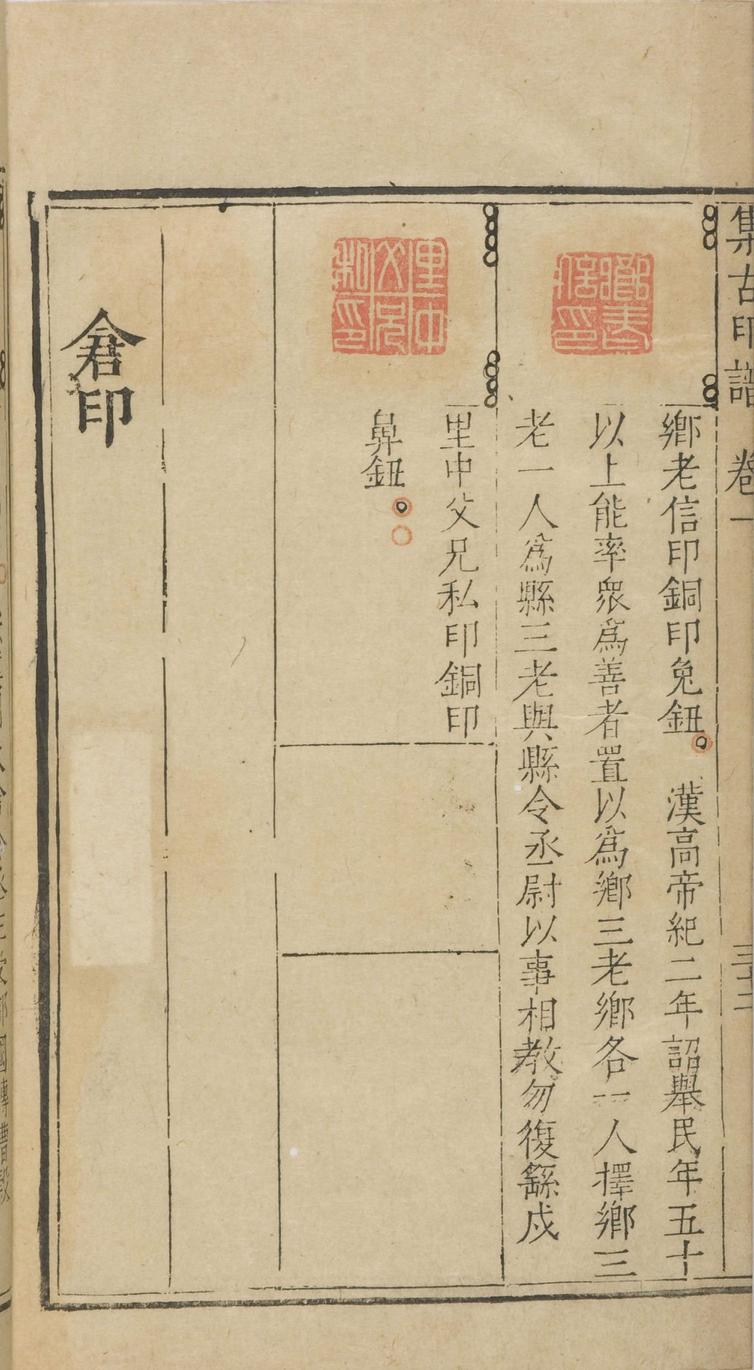 集古印譜 卷一 三十二
鄉老信印
鄉老信印銅印兔鈕 漢高帝紀二年詔舉民年五十
以上能率衆爲善者置以爲鄉三老鄉各一人擇鄉三
老一人爲縣三老與縣令丞尉以事相教勿復繇戍
里中父兄私印
里中父兄私印銅印
鼻鈕
倉印